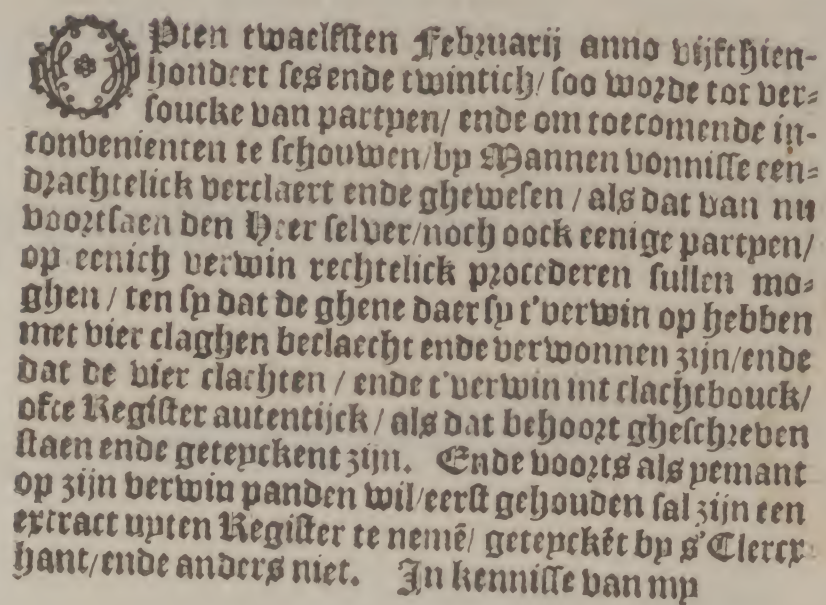 OPten twaelfsten Februarij anno vijfthien-
hondert ses ende twintich/ soo worde tot ver-
soucke van partyen/ ende om toecomende in-
convenienten te schouwen/ by Mannen vonnisse een-
drachtelick verclaert ende ghewesen / als dat van nu
voortsaen den Heer selver/ noch oock eenige partyen/
op eenich verwin rechtelick procederen sullen mo-
ghen / ten sy dat de ghene daer sy t'verwin op hebben
met vier claghen beclaecht ende verwonnen zijn/ ende
dat de vier clachten / ende t'verwin int clachtbouck/
ofte Register autentijck / als dat behoort gheschreven
staen ende geteyckent zijn. Ende voorts als yemant
op zijn verwin panden wil/ eerst gehouden sal zijn een
extract upten Register te nemē/ geteyckēt by s'Clercx
hant/ ende anders niet. In kennisse van my